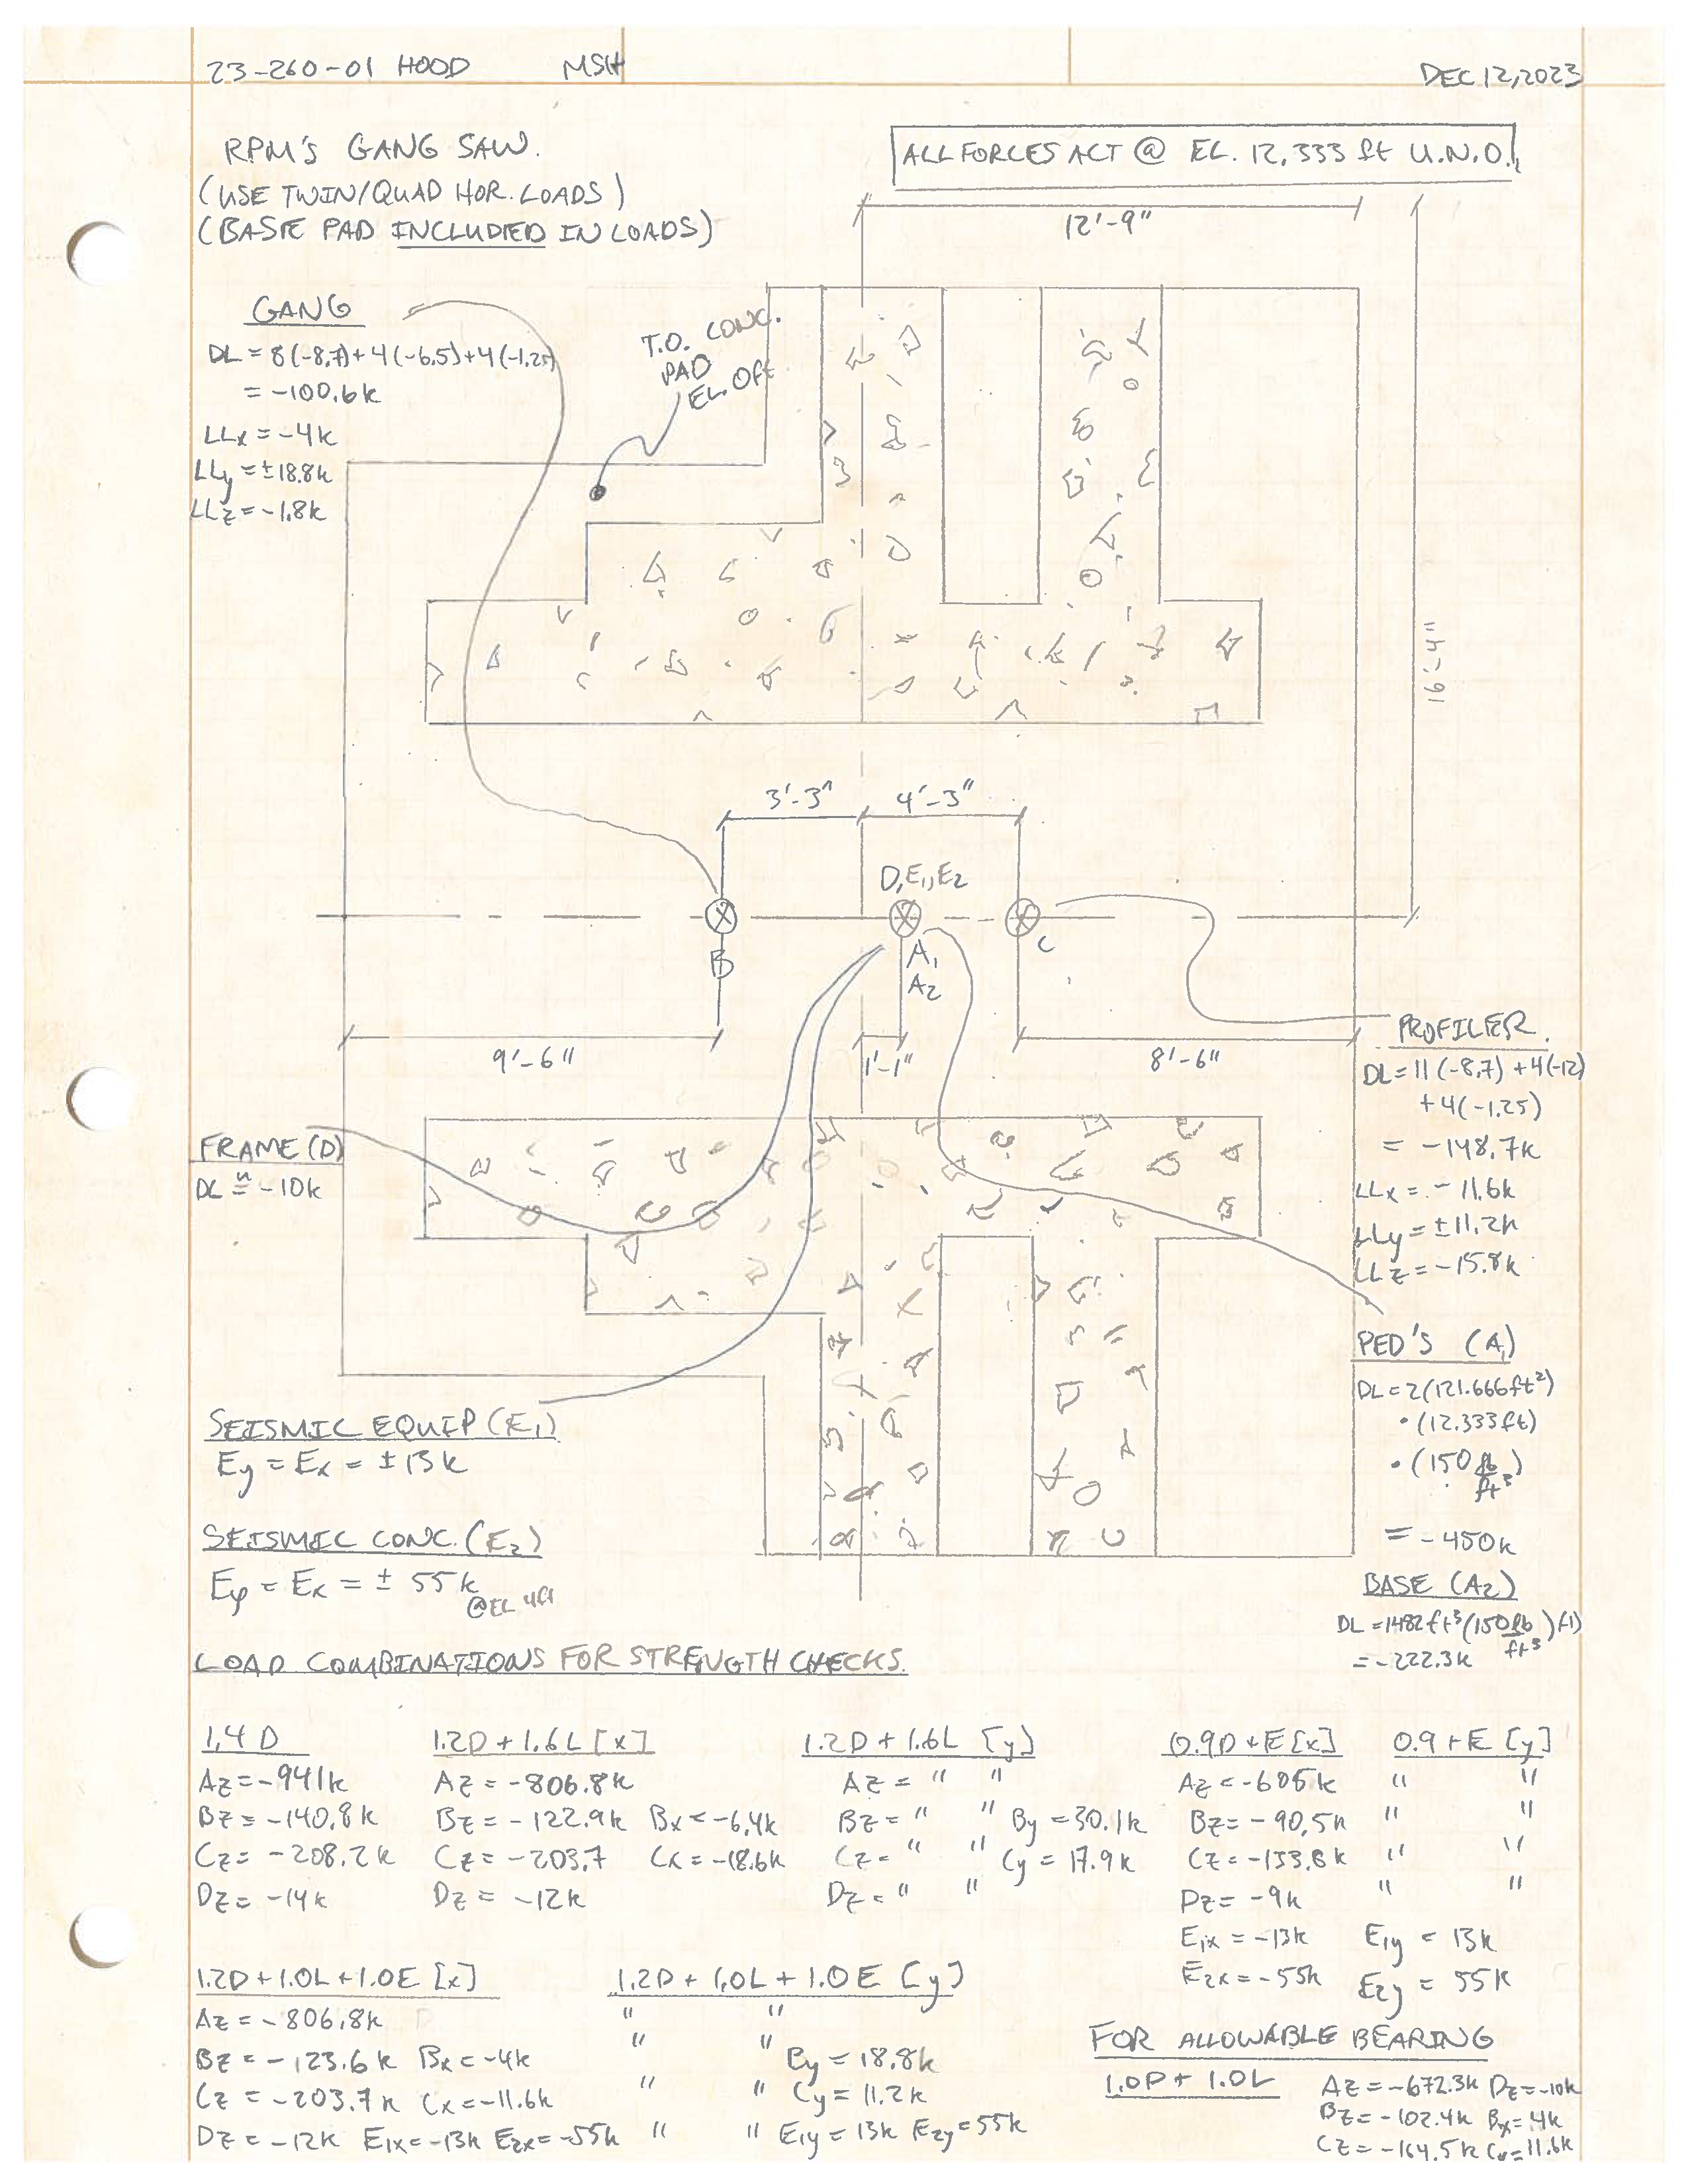 23-260-01 HOOD MSH DEC 12, 2023
RPM'S GANG SAW.
(USE TWIN/QUAD HOR. LOADS)
(BASE PAD INCLUDED IN LOADS)
ALL FORCES ACT @ EL. 12.333 ft U.N.O.
12'-9"
GANG
DL = 8(-8.7) + 4(-6.5) + 4(-1.25)
= -100.6k
LLx = -4k
LLy = ±18.8k
LLz = -1.8k
T.O. CONC.
PAD
EL. 0ft
16'-4"
3'-3" 4'-3"
D, E1, E2
B A1 C
A2
9'-6" 1'-1" 8'-6"
PROFILER
DL = 11(-8.7) + 4(-12)
+ 4(-1.25)
= -148.7k
LLx = -11.6k
LLy = ±11.2k
LLz = -15.8k
FRAME (D)
DL ≅ -10k
PED'S (A1)
DL = 2(121.666ft²)
• (12.333ft)
• (150 lb/ft³)
= -450k
BASE (A2)
DL = 1482ft³(150 lb/ft³)(-1)
= -222.3k
SEISMIC EQUIP (E1)
Ey = Ex = ±13k
SEISMIC CONC. (E2)
Ey = Ex = ± 55k
@EL 4ft
LOAD COMBINATIONS FOR STRENGTH CHECKS.
1.4 D
Az = -941k
Bz = -140.8k
Cz = -208.2k
Dz = -14k
1.2D + 1.6L [x]
Az = -806.8k
Bz = -122.9k Bx = -6.4k
Cz = -203.7 Cx = -18.6k
Dz = -12k
1.2D + 1.6L [y]
Az = " "
Bz = " " By = 30.1k
Cz = " " Cy = 17.9k
Dz = " "
0.9D + E [x]
Az = -605k
Bz = -90.5k
Cz = -133.8k
Dz = -9k
E1x = -13k
E2x = -55k
0.9 + E [y]
" "
" "
" "
" "
E1y = 13k
E2y = 55k
1.2D + 1.0L + 1.0E [x]
Az = -806.8k
Bz = -123.6k Bx = -4k
Cz = -203.7k Cx = -11.6k
Dz = -12k E1x = -13k E2x = -55k
1.2D + 1.0L + 1.0E [y]
" "
" " By = 18.8k
" " Cy = 11.2k
" " E1y = 13k E2y = 55k
FOR ALLOWABLE BEARING
1.0D + 1.0L
Az = -672.3k Dz = -10k
Bz = -102.4k Bx = 4k
Cz = -164.5k Cx = 11.6k